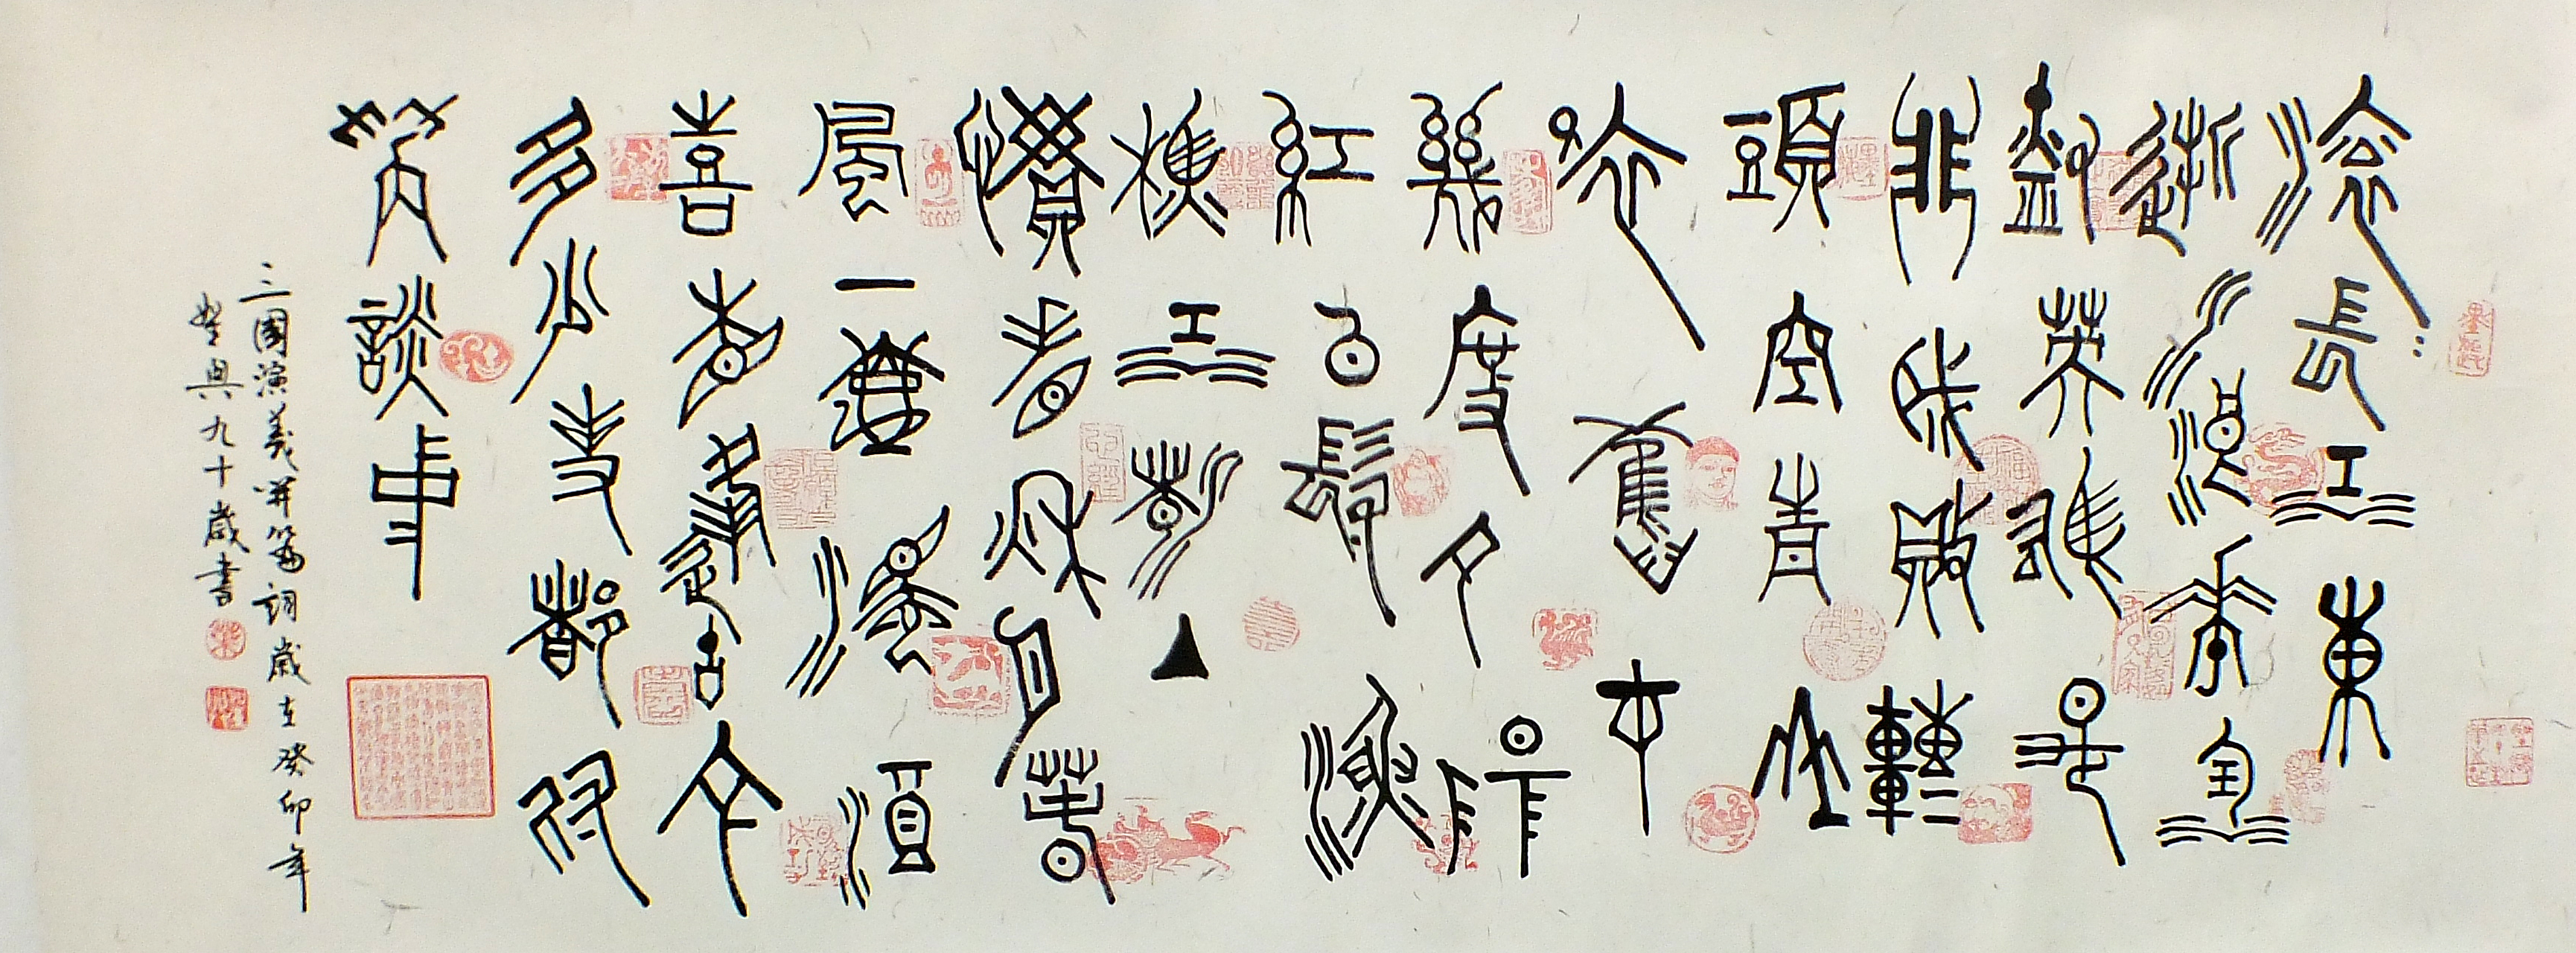 滾〻長江東
逝水浪花淘
盡英雄是
非成敗轉
頭空青山
依舊在
幾度夕陽
紅白髮漁
樵江渚上
慣看秋月春
風一壺濁酒
喜相逢古今
多少事都付
笑談中
三國演義開篇詞歲在癸卯年
興九十歲書